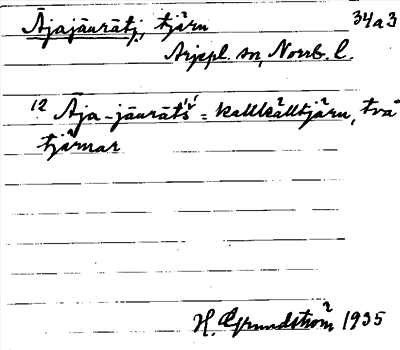 Äjajäurätj, tjärn 34a3
Arjepl. sn, Norrb. l.
12 Äja-jäuräts = kallkälltjärn, två
tjärnar
H. Grundström 1935